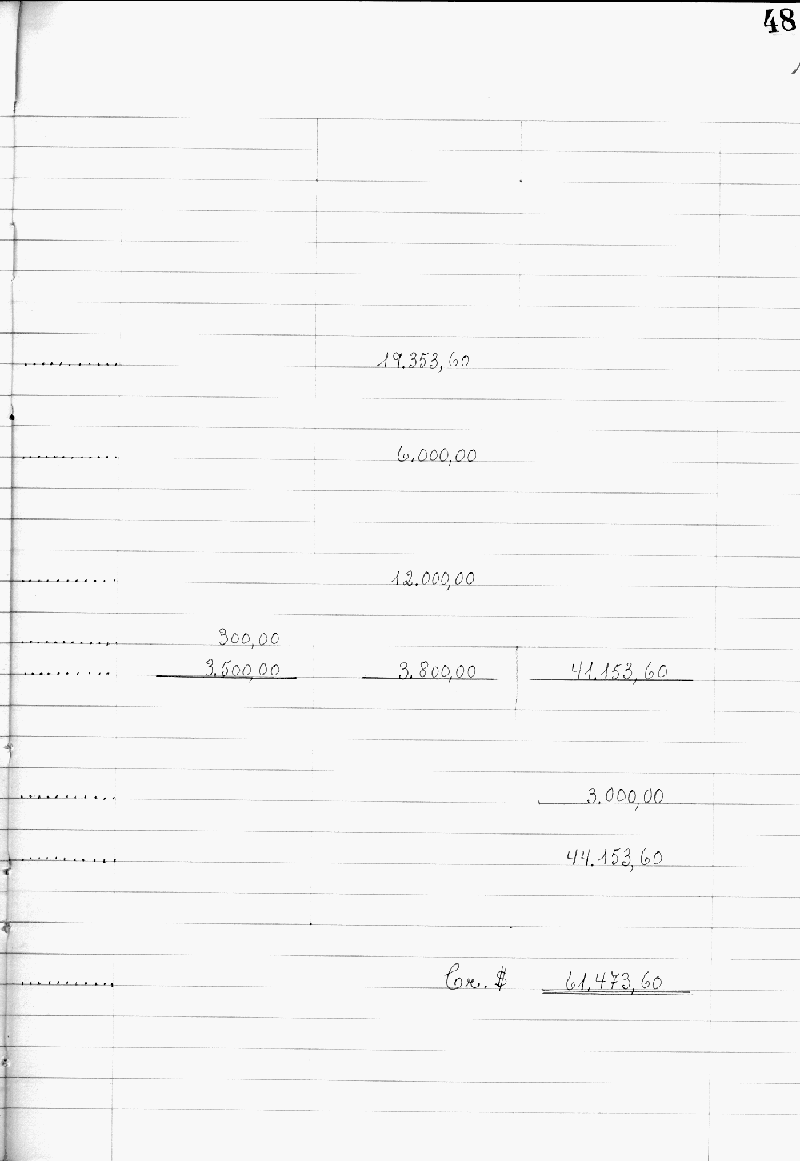 48
.......... 19.353,60
.......... 6.000,00
.......... 12.000,00
.......... 300,00
.......... 3.500,00 3.800,00 41.153,60
.......... 3.000,00
.......... 44.153,60
.......... Cr. $ 61.473,60